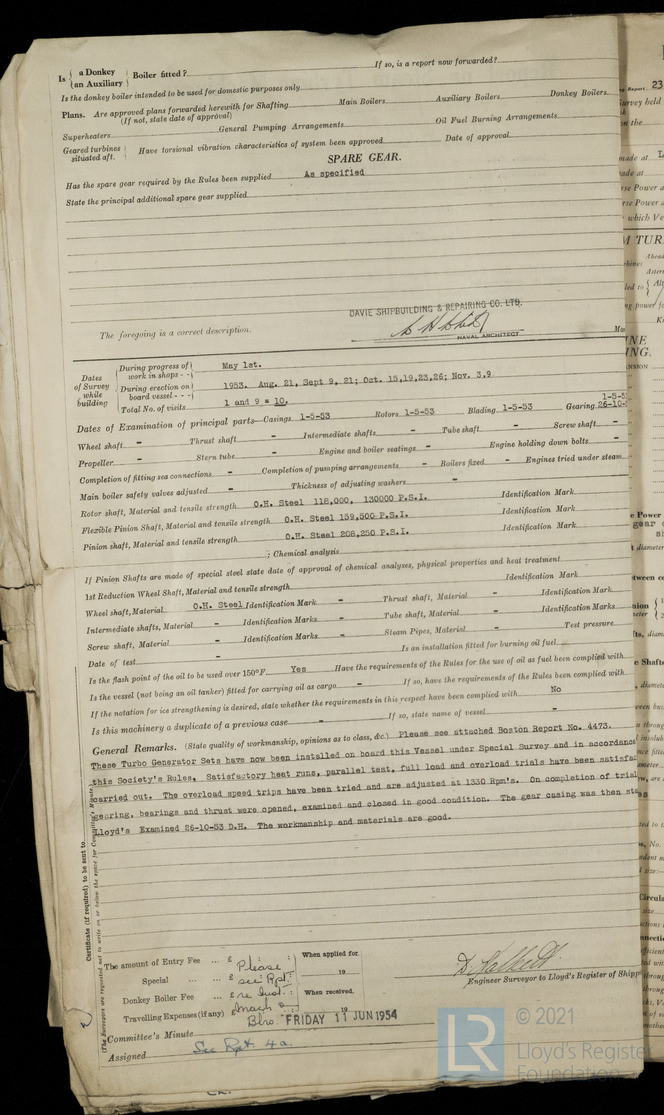 Is { a Donkey / an Auxiliary } Boiler fitted? If so, is a report now forwarded?
Is the donkey boiler intended to be used for domestic purposes only
Plans. Are approved plans forwarded herewith for Shafting Main Boilers Auxiliary Boilers Donkey Boilers
(If not, state date of approval)
Superheaters General Pumping Arrangements Oil Fuel Burning Arrangements
Geared turbines situated aft. } Have torsional vibration characteristics of system been approved Date of approval
SPARE GEAR.
Has the spare gear required by the Rules been supplied As specified
State the principal additional spare gear supplied
DAVIE SHIPBUILDING & REPAIRING CO. LTD.
The foregoing is a correct description.
NAVAL ARCHITECT
Dates of Survey while building
During progress of work in shops - - } May 1st.
During erection on board vessel - - - } 1953. Aug. 21, Sept 9, 21; Oct. 15,19,23,26; Nov. 3,9
Total No. of visits 1 and 9 = 10.
Dates of Examination of principal parts—Casings 1-5-53 Rotors 1-5-53 Blading 1-5-53 Gearing 1-5-53 26-10-5
Wheel shaft - Thrust shaft - Intermediate shafts - Tube shaft - Screw shaft -
Propeller - Stern tube - Engine and boiler seatings - Engine holding down bolts -
Completion of fitting sea connections - Completion of pumping arrangements - Boilers fixed - Engines tried under steam
Main boiler safety valves adjusted - Thickness of adjusting washers -
Rotor shaft, Material and tensile strength O.H. Steel 118,000, 130000 P.S.I. Identification Mark
Flexible Pinion Shaft, Material and tensile strength O.H. Steel 159,500 P.S.I. Identification Mark
Pinion shaft, Material and tensile strength O.H. Steel 208,250 P.S.I. Identification Mark
; Chemical analysis
If Pinion Shafts are made of special steel state date of approval of chemical analyses, physical properties and heat treatment
1st Reduction Wheel Shaft, Material and tensile strength Identification Mark
Wheel shaft, Material O.H. Steel Identification Mark - Thrust shaft, Material - Identification Mark
Intermediate shafts, Material - Identification Marks - Tube shaft, Material - Identification Marks
Screw shaft, Material - Identification Marks - Steam Pipes, Material - Test pressure
Date of test - Is an installation fitted for burning oil fuel
Is the flash point of the oil to be used over 150°F. Yes Have the requirements of the Rules for the use of oil as fuel been complied with
Is the vessel (not being an oil tanker) fitted for carrying oil as cargo - If so, have the requirements of the Rules been complied with
If the notation for ice strengthening is desired, state whether the requirements in this respect have been complied with No
Is this machinery a duplicate of a previous case - If so, state name of vessel -
General Remarks. (State quality of workmanship, opinions as to class, &c.) Please see attached Boston Report No. 4473.
These Turbo Generator Sets have now been installed on board this Vessel under Special Survey and in accordance
this Society's Rules. Satisfactory heat runs, parallel test, full load and overload trials have been satisfac
carried out. The overload speed trips have been tried and are adjusted at 1330 Rpm's. On completion of trial
gearing, bearings and thrust were opened, examined and closed in good condition. The gear casing was then sta
Lloyd's Examined 26-10-53 D.H. The workmanship and materials are good.
Certificate (if required) to be sent to
(The Surveyors are requested not to write on or below the space for Committee's Minute.)
The amount of Entry Fee ... £ Please : When applied for
Special ... £ see Rpt. : 19
Donkey Boiler Fee ... £ : When received,
Travelling Expenses (if any) £ 19
Engineer Surveyor to Lloyd's Register of Shipp
Committee's Minute FRIDAY 11 JUN 1954
Assigned See Rpt. 4a.
LR © 2021
Lloyd's Register
Foundation